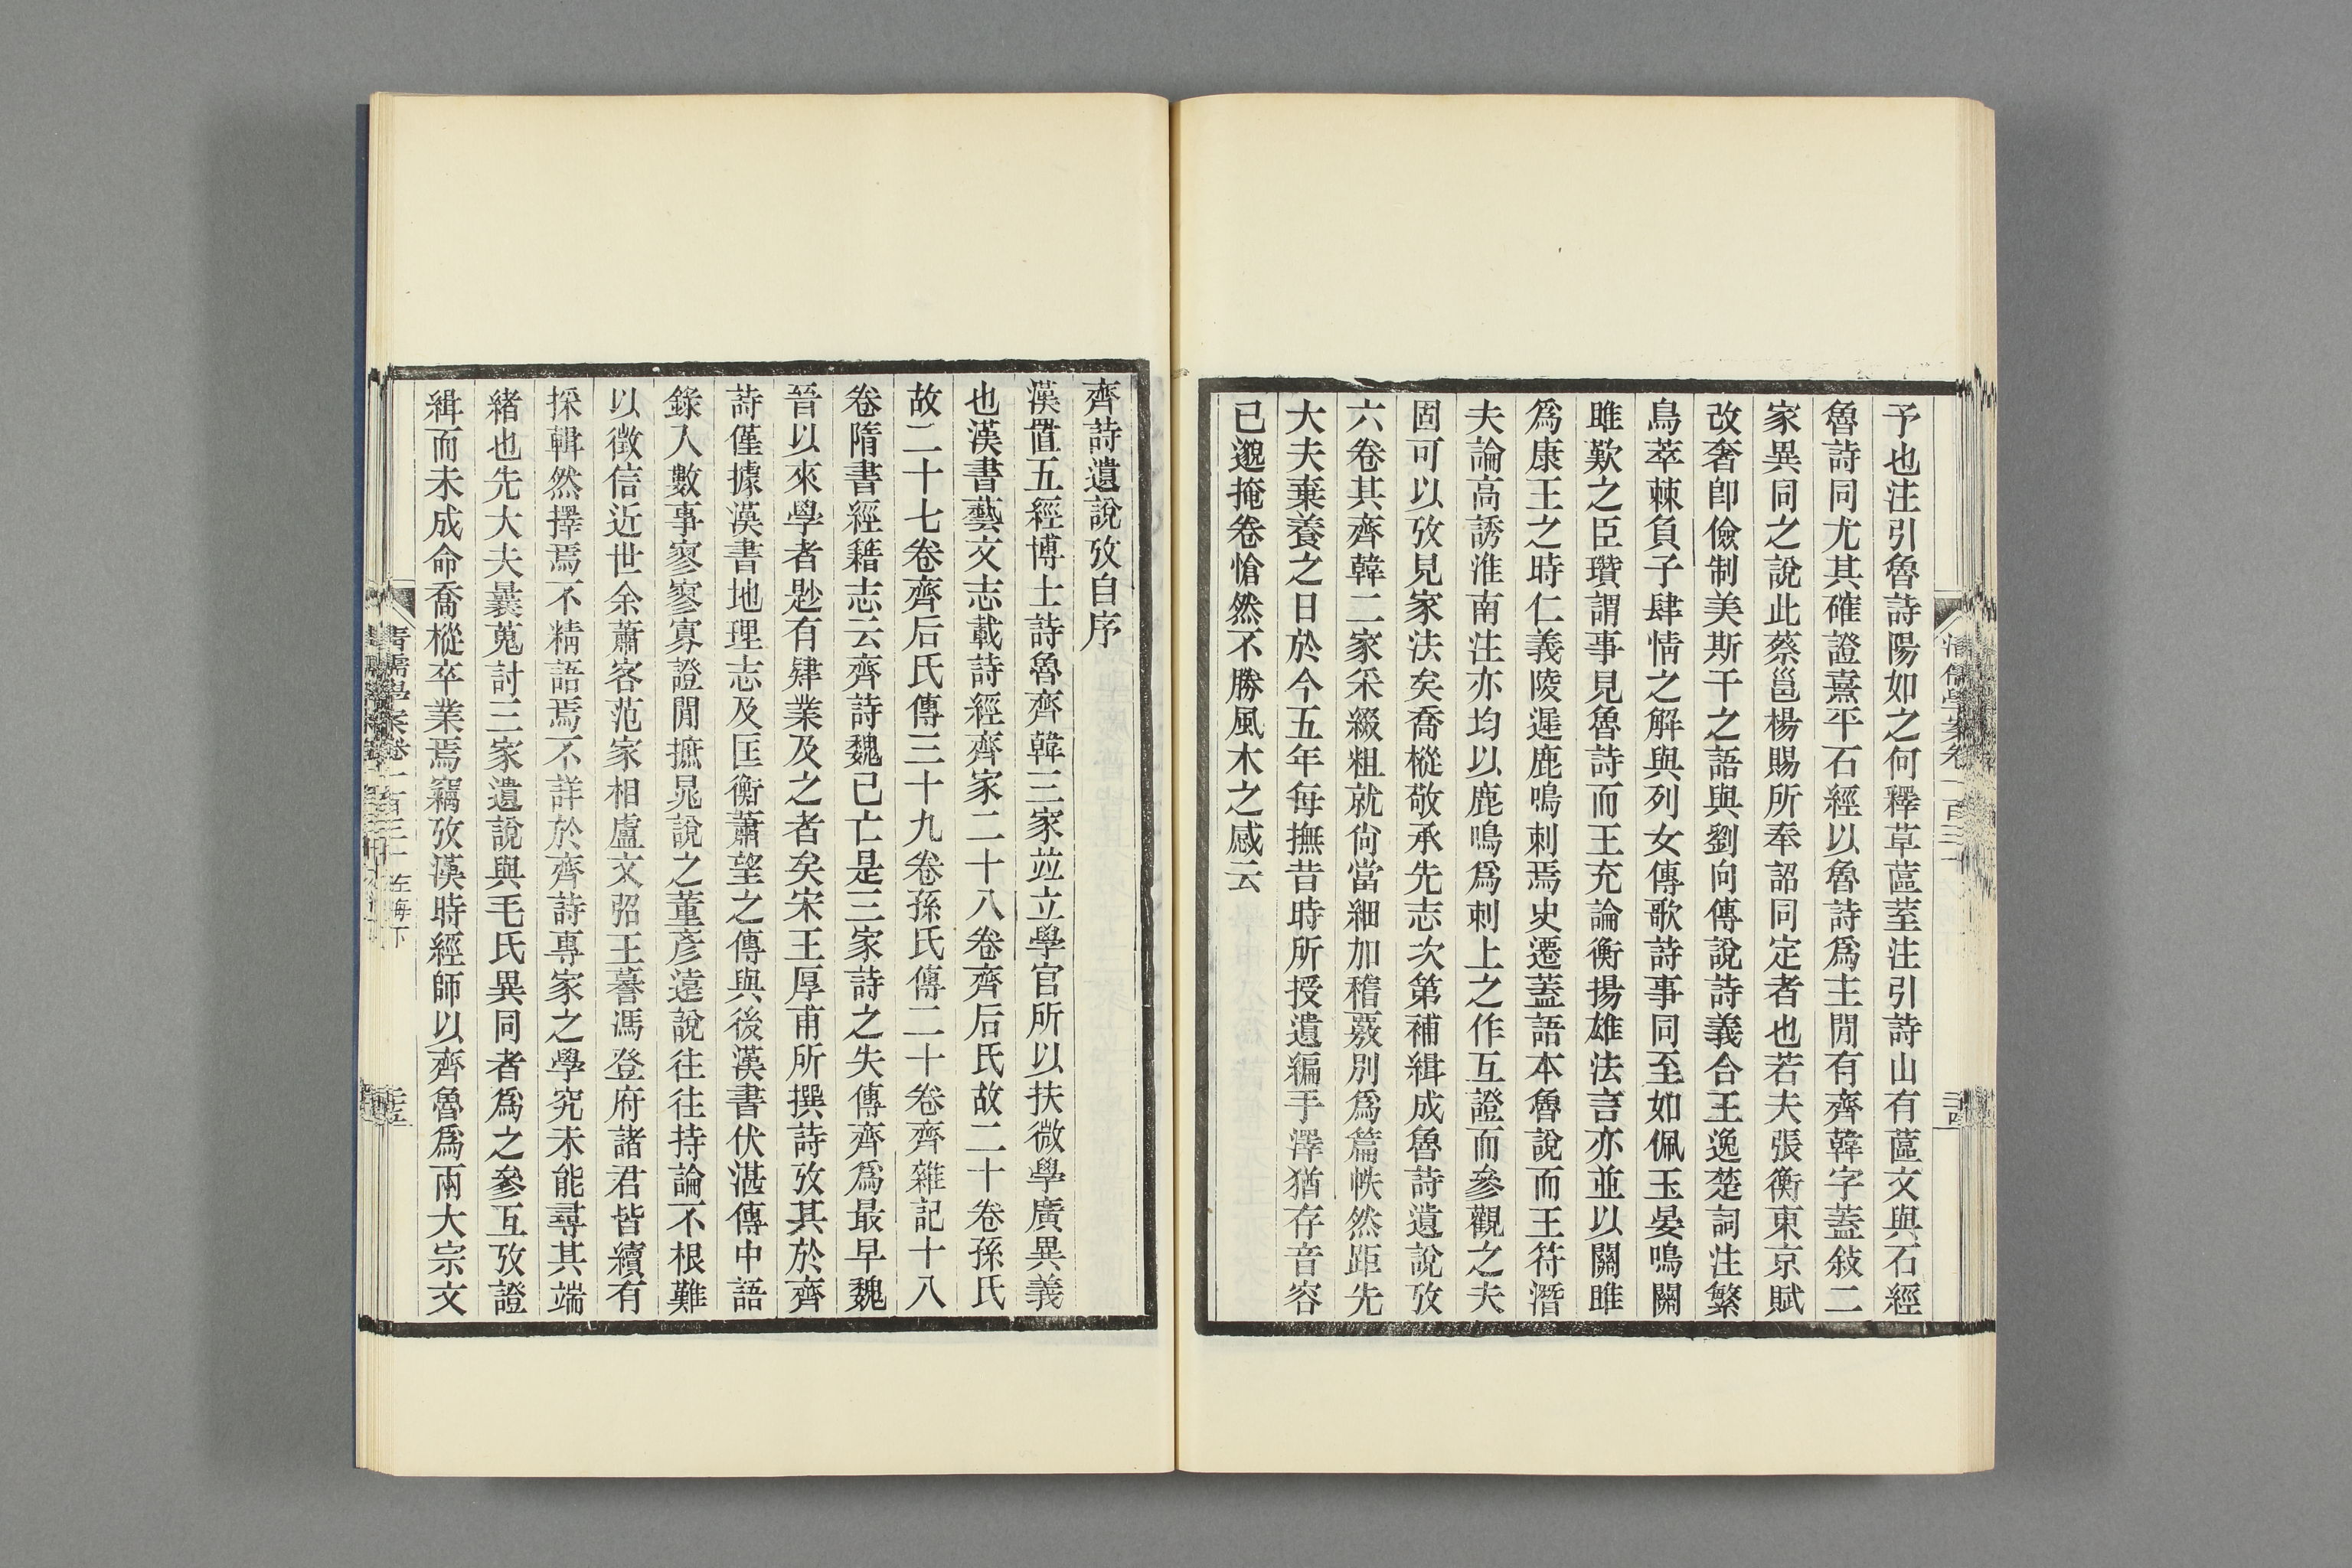 予也注引魯詩陽如之何釋草蓲荎注引詩山有蓲文與石經
魯詩同尤其確證熹平石經以魯詩爲主閒有齊韓字蓋敍二
家異同之說此蔡邕楊賜所奉詔同定者也若夫張衡東京賦
改奢卽儉制美斯干之語與劉向傳說詩義合王逸楚詞注繁
鳥萃棘負子肆情之解與列女傳歌詩事同至如佩玉晏鳴關
雎歎之臣瓚謂事見魯詩而王充論衡揚雄法言亦並以關雎
爲康王之時仁義陵遲鹿鳴刺焉史遷蓋語本魯說而王符潛
夫論高誘淮南注亦均以鹿鳴爲刺上之作互證而參觀之夫
固可以攷見家法矣喬樅敬承先志次第補緝成魯詩遺說攷
六卷其齊韓二家采綴粗就尙當細加稽覈別爲篇帙然距先
大夫棄養之日於今五年每撫昔時所授遺編手澤猶存音容
已邈掩卷愴然不勝風木之感云
齊詩遺說攷自序
漢置五經博士詩魯齊韓三家竝立學官所以扶微學廣異義
也漢書藝文志載詩經齊家二十八卷齊后氏故二十卷孫氏
故二十七卷齊后氏傳三十九卷孫氏傳二十卷齊雜記十八
卷隋書經籍志云齊詩魏已亡是三家詩之失傳齊爲最早魏
晉以來學者尟有肄業及之者矣宋王厚甫所撰詩攷其於齊
詩僅據漢書地理志及匡衡蕭望之傳與後漢書伏湛傳中語
錄入數事寥寥寡證閒摭晁說之董彥遠說往往持論不根難
以徵信近世余蕭客范家相盧文弨王謩馮登府諸君皆續有
採輯然擇焉不精語焉不詳於齊詩專家之學究未能尋其端
緒也先大夫曩蒐討三家遺說與毛氏異同者爲之參互攷證
緝而未成命喬樅卒業焉竊攷漢時經師以齊魯爲兩大宗文
清儒學案卷一百三十 左海下